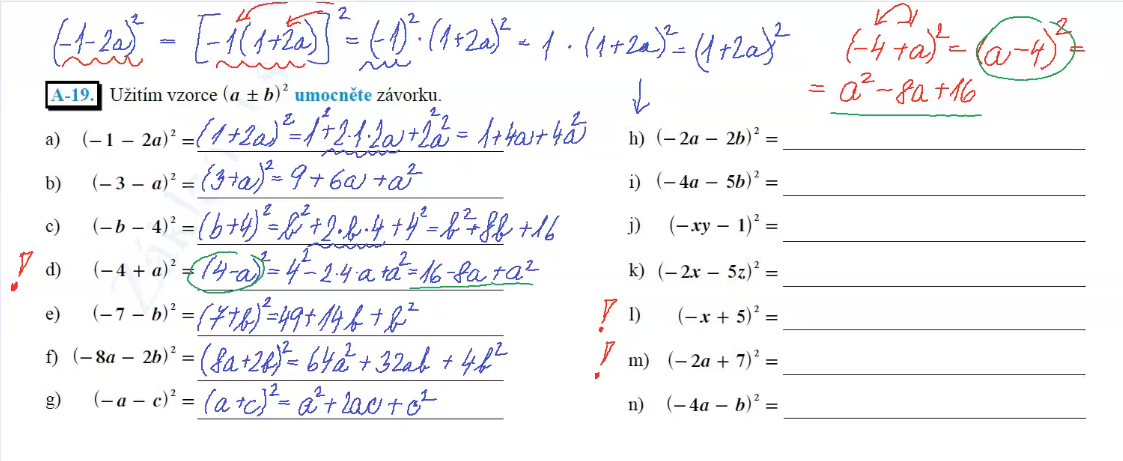 (-1-2a)² = [-1(1+2a)]² = (-1)²·(1+2a)² = 1·(1+2a)² = (1+2a)²
(-4+a)² = (a-4)² =
= a²-8a+16
A-19. Užitím vzorce (a ± b)² umocněte závorku.
a) (−1 − 2a)² = (1+2a)² = 1²+2·1·2a+2²a² = 1+4a+4a²
b) (−3 − a)² = (3+a)² = 9+6a+a²
c) (−b − 4)² = (b+4)² = b²+2·b·4+4² = b²+8b+16
d) (−4 + a)² = (4-a)² = 4²-2·4·a+a² = 16-8a+a²
e) (−7 − b)² = (7+b)² = 49+14b+b²
f) (−8a − 2b)² = (8a+2b)² = 64a²+32ab+4b²
g) (−a − c)² = (a+c)² = a²+2ac+c²
h) (−2a − 2b)² =
i) (−4a − 5b)² =
j) (−xy − 1)² =
k) (−2x − 5z)² =
l) (−x + 5)² =
m) (−2a + 7)² =
n) (−4a − b)² =